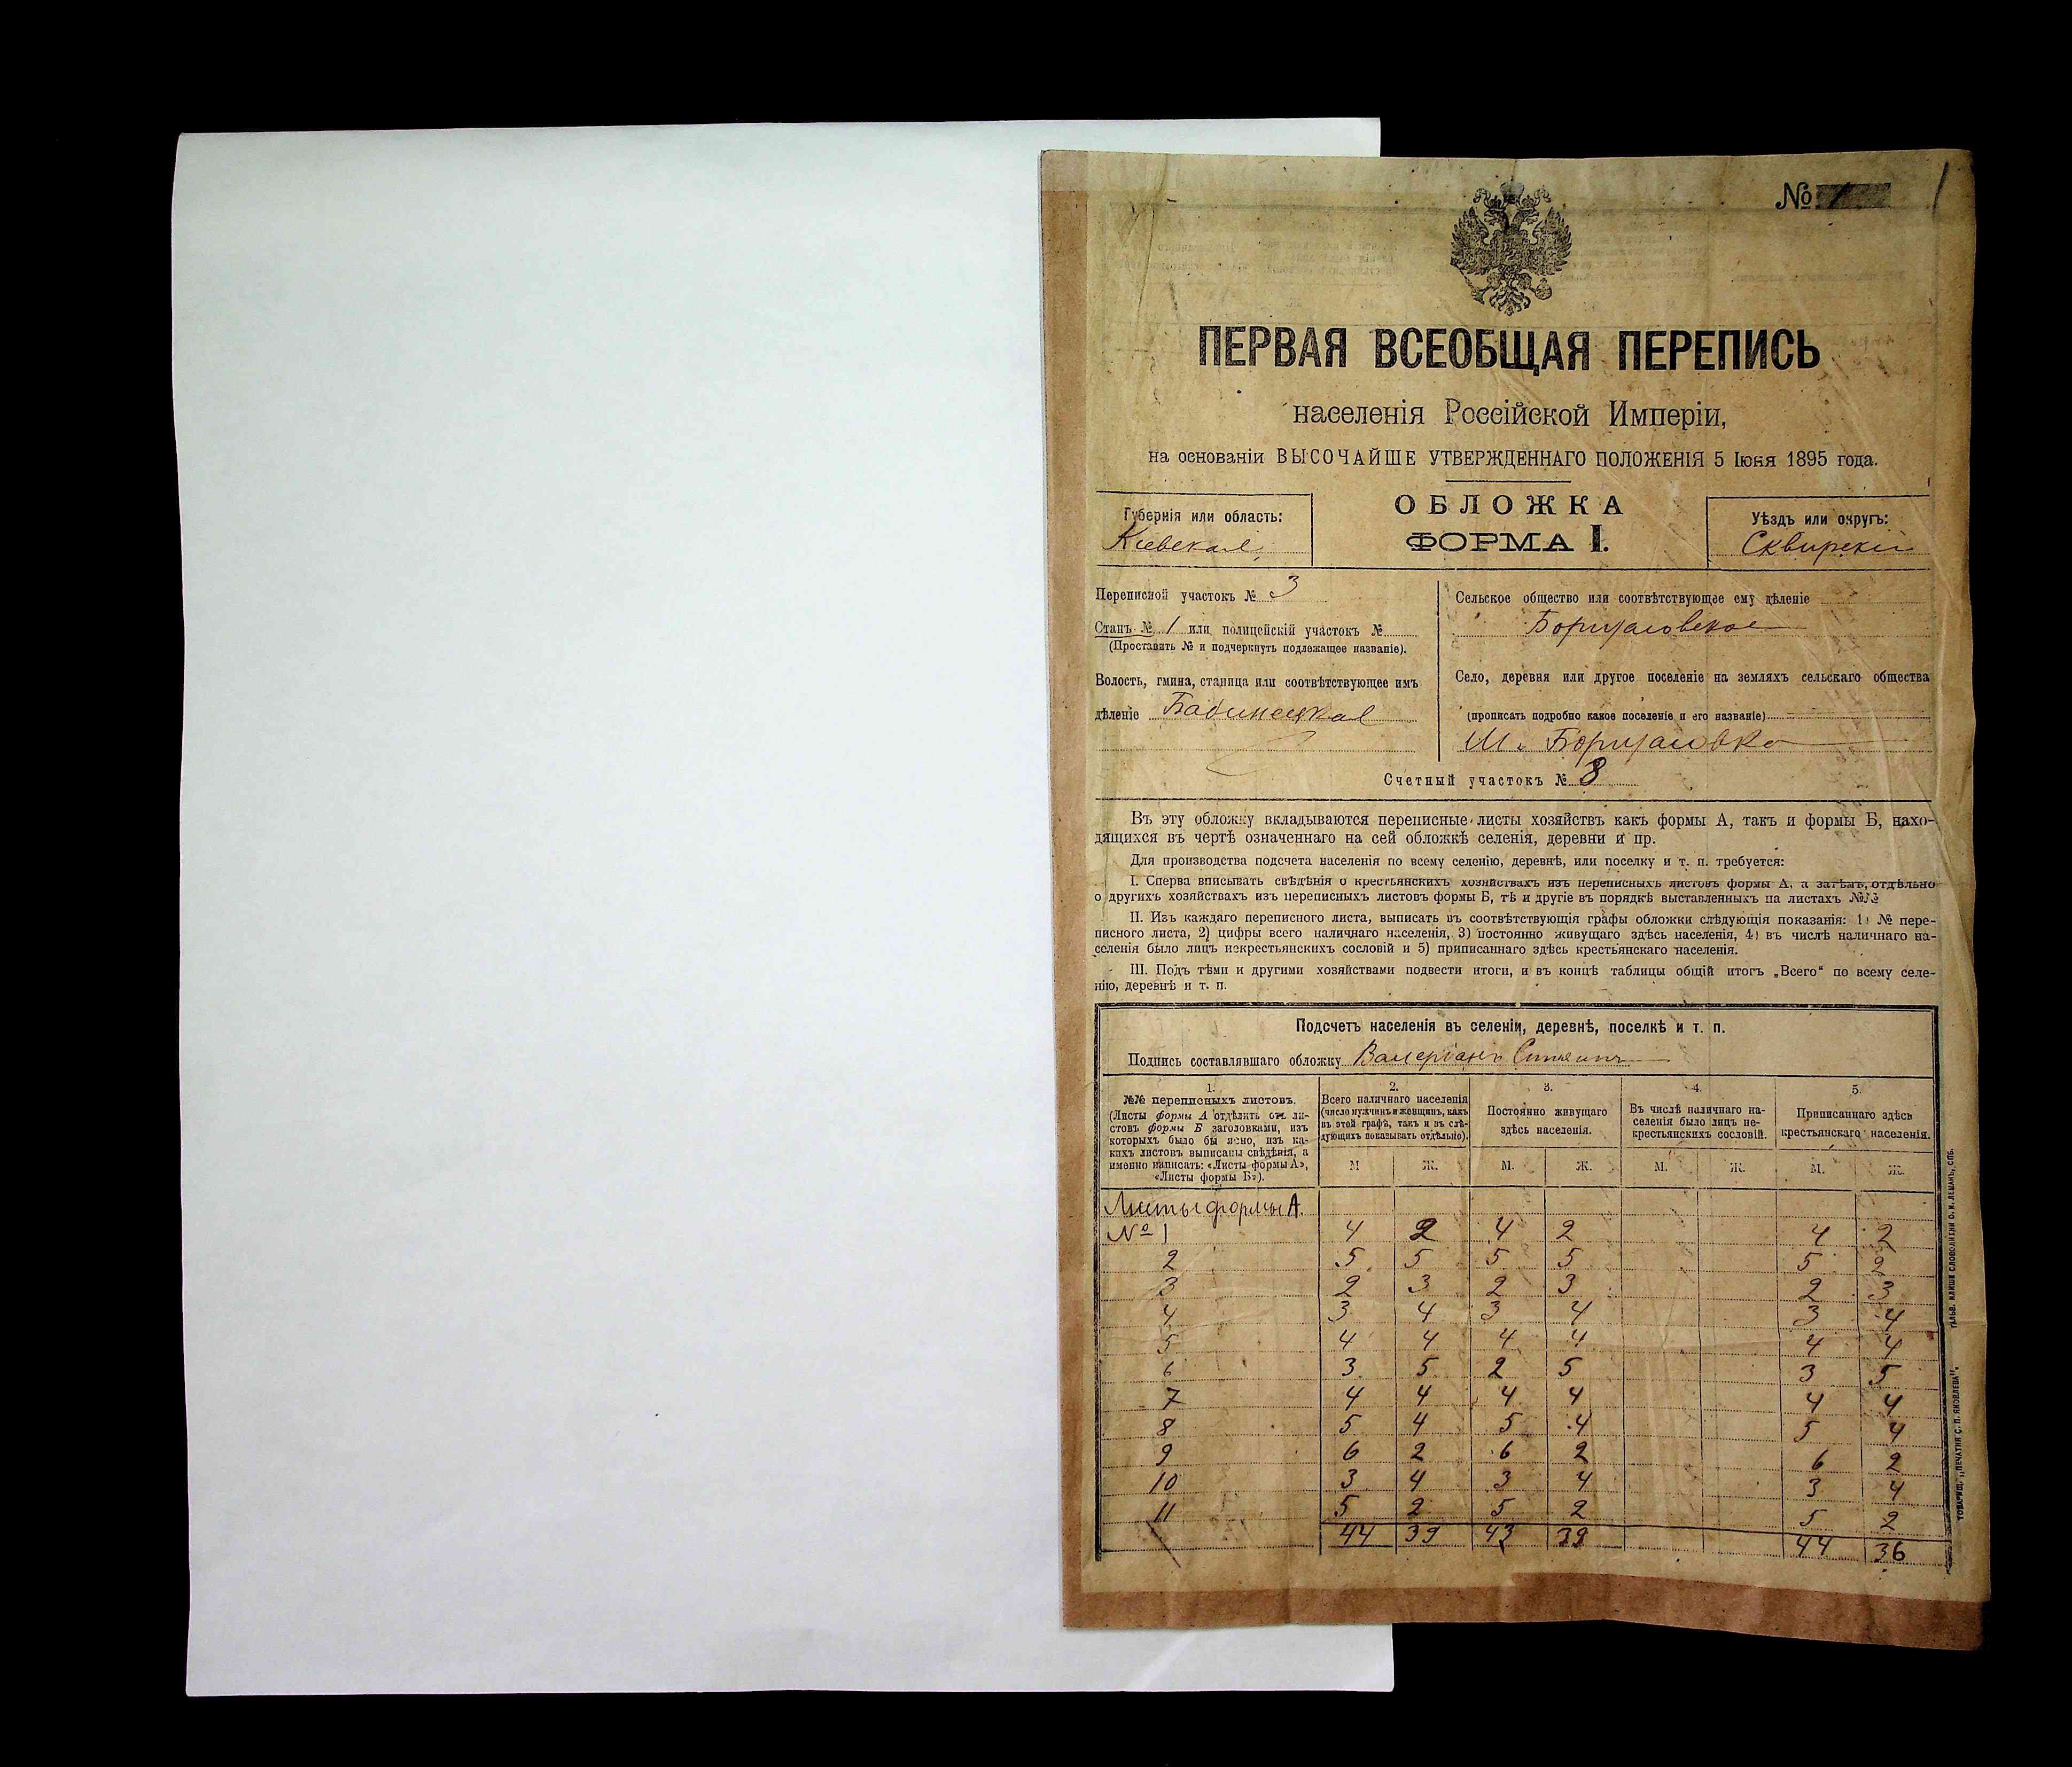 № 1
ПЕРВАЯ ВСЕОБЩАЯ ПЕРЕПИСЬ
населенія Россійской Имперіи,
на основаніи ВЫСОЧАЙШЕ УТВЕРЖДЕННАГО ПОЛОЖЕНІЯ 5 Іюня 1895 года.
ОБЛОЖКА
ФОРМА I.
Губернія или область:
Кіевская
Уѣздъ или округъ:
Сквирскій
Переписной участокъ № 3
Станъ № 1 или полицейскій участокъ №
(Проставить № и подчеркнуть подлежащее названіе).
Волость, гмина, станица или соотвѣтствующее имъ
дѣленіе
Сельское общество или соотвѣтствующее ему дѣленіе
Село, деревня или другое поселеніе на земляхъ сельскаго общества
(прописать подробно какое поселеніе и его названіе)
Счетный участокъ № 8
Въ эту обложку вкладываются переписные листы хозяйствъ какъ формы А, такъ и формы Б, нахо-
дящихся въ чертѣ означеннаго на сей обложкѣ селенія, деревни и пр.
Для производства подсчета населенія по всему селенію, деревнѣ, или поселку и т. п. требуется:
I. Сперва вписывать свѣдѣнія о крестьянскихъ хозяйствахъ изъ переписныхъ листовъ формы А, а затѣмъ, отдѣльно
о другихъ хозяйствахъ изъ переписныхъ листовъ формы Б, тѣ и другіе въ порядкѣ выставленныхъ на листахъ №№
II. Изъ каждаго переписного листа, выписать въ соотвѣтствующія графы обложки слѣдующія показанія: 1) № пере-
писного листа, 2) цифры всего наличнаго населенія, 3) постоянно живущаго здѣсь населенія, 4) въ числѣ наличнаго на-
селенія было лицъ некрестьянскихъ сословій и 5) приписаннаго здѣсь крестьянскаго населенія.
III. Подъ тѣми и другими хозяйствами подвести итоги, и въ концѣ таблицы общій итогъ „Всего“ по всему селе-
нію, деревнѣ и т. п.
Подсчетъ населенія въ селеніи, деревнѣ, поселкѣ и т. п.
Подпись составлявшаго обложку Валеріанъ
1.
№№ переписныхъ листовъ.
(Листы формы А отдѣлить отъ ли-
стовъ формы Б заголовками, изъ
которыхъ было бы ясно, изъ ка-
кихъ листовъ выписаны свѣдѣнія, а
именно написать: «Листы формы А»,
«Листы формы Б»).
2.
Всего наличнаго населенія
(число мужчинъ и женщинъ, какъ
въ этой графѣ, такъ и въ слѣ-
дующихъ показывать отдѣльно).
3.
Постоянно живущаго
здѣсь населенія.
4.
Въ числѣ наличнаго на-
селенія было лицъ не-
крестьянскихъ сословій.
5.
Приписаннаго здѣсь
крестьянскаго населенія.
М Ж. М. Ж. М. Ж. М. Ж.
Листы формы А.
№ 1 4 2 4 2 4 2
2 5 5 5 5 5 2
3 2 3 2 3 2 3
4 3 4 3 4 3 4
5 4 4 4 4 4 4
6 3 5 2 5 3 5
7 4 4 4 4 4 4
8 5 4 5 4 5 4
9 6 2 6 2 6 2
10 3 4 3 4 3 4
11 5 2 5 2 5 2
44 39 43 39 44 36
ГАЛЬВ. КЛИШЕ СЛОВОЛИТНИ О. И. ЛЕМАНЪ, СПБ.
ТОВАРИЩ. „ПЕЧАТНЯ С. П. ЯКОВЛЕВА“.